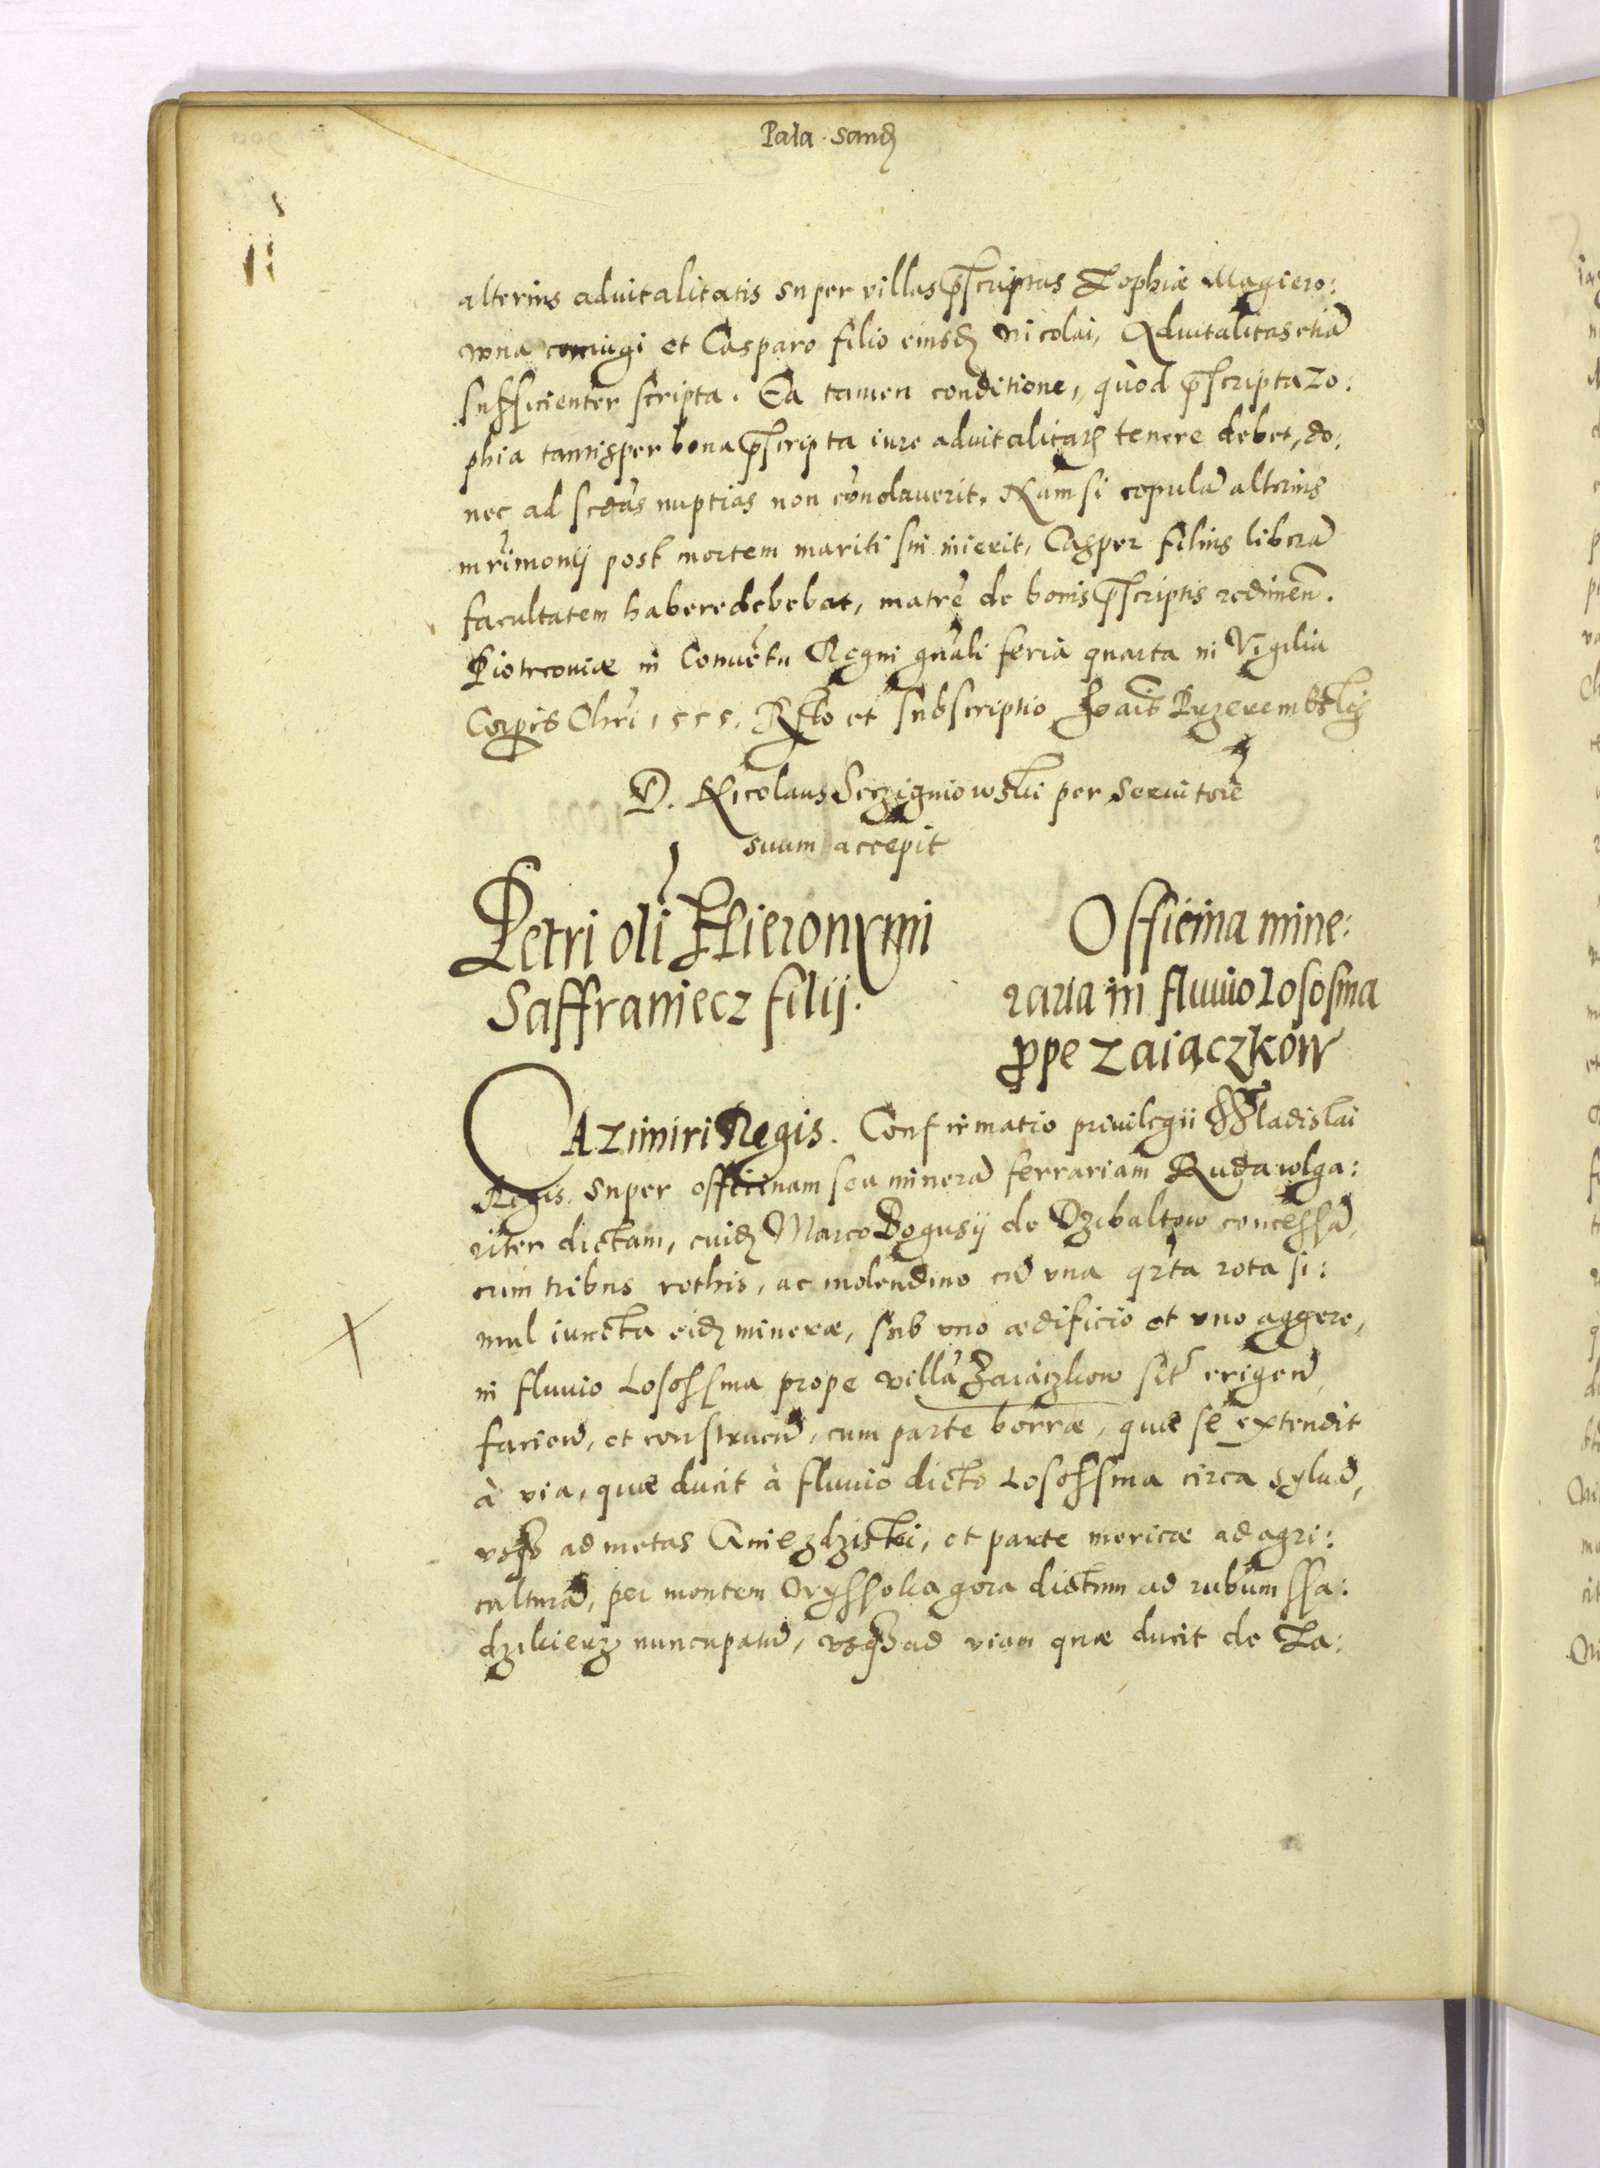 Pala. Sand
alterius aduitalitatis super villas p̃scriptas Zophiæ Magiero:
wna coniugi et Casparo filio eiusd Nicolai, Aduitalitas etiã
sufficienter scripta. Ea tamen conditione, quòd p̃scripta Zo:
phia tantisper bona p̃scripta iure aduitalitatis tenere debet, do:
nec ad scdas nuptias non conolauerit. Nam si copulã alterius
mrimonij post mortem mariti sui inierit, Casper filius liberã
facultatem habere debebat, matrẽ de bonis p̃scriptis redimen.
Piotrcouiæ in Conuẽtu Regni gnãli feria quarta in Vigilia
Corpis Chri 1555. Rto et subscriptio Joañis Przerembski
D. Nicolaus Seczigniowski per seruitorẽ
suum accepit
Petri oli Hieronymi
Saffraniecz filij.
Officina mine:
raria in fluuio Lososina
ꝓpe Zaiączków
CAzimiri Regis. Confirmatio priuilegii Wladislai
Regis super officinam seu minerã ferrariam Ruda wlga:
riter dictam, cuid Marco Bogusij de Dzibaltow concessã,
cum tribus rothis, ac molendino cũ vna qrta rota si:
mul iuncta eid mineræ, sub vno ædificio et vno aggere,
in fluuio Losossina prope villã Zaiączkow sit erigend,
faciend, et construend, cum parte borræ, quæ se extendit
à via, quæ ducit à fluuio dicto Losossina circa syluã,
vsq ad metas Gniezdziski, et parte mericæ ad agri:
culturã, per montem Oryssoka gora dictum ad rubum ssa:
dzikierz nuncupatũ, vsq ad viam quæ ducit de La: